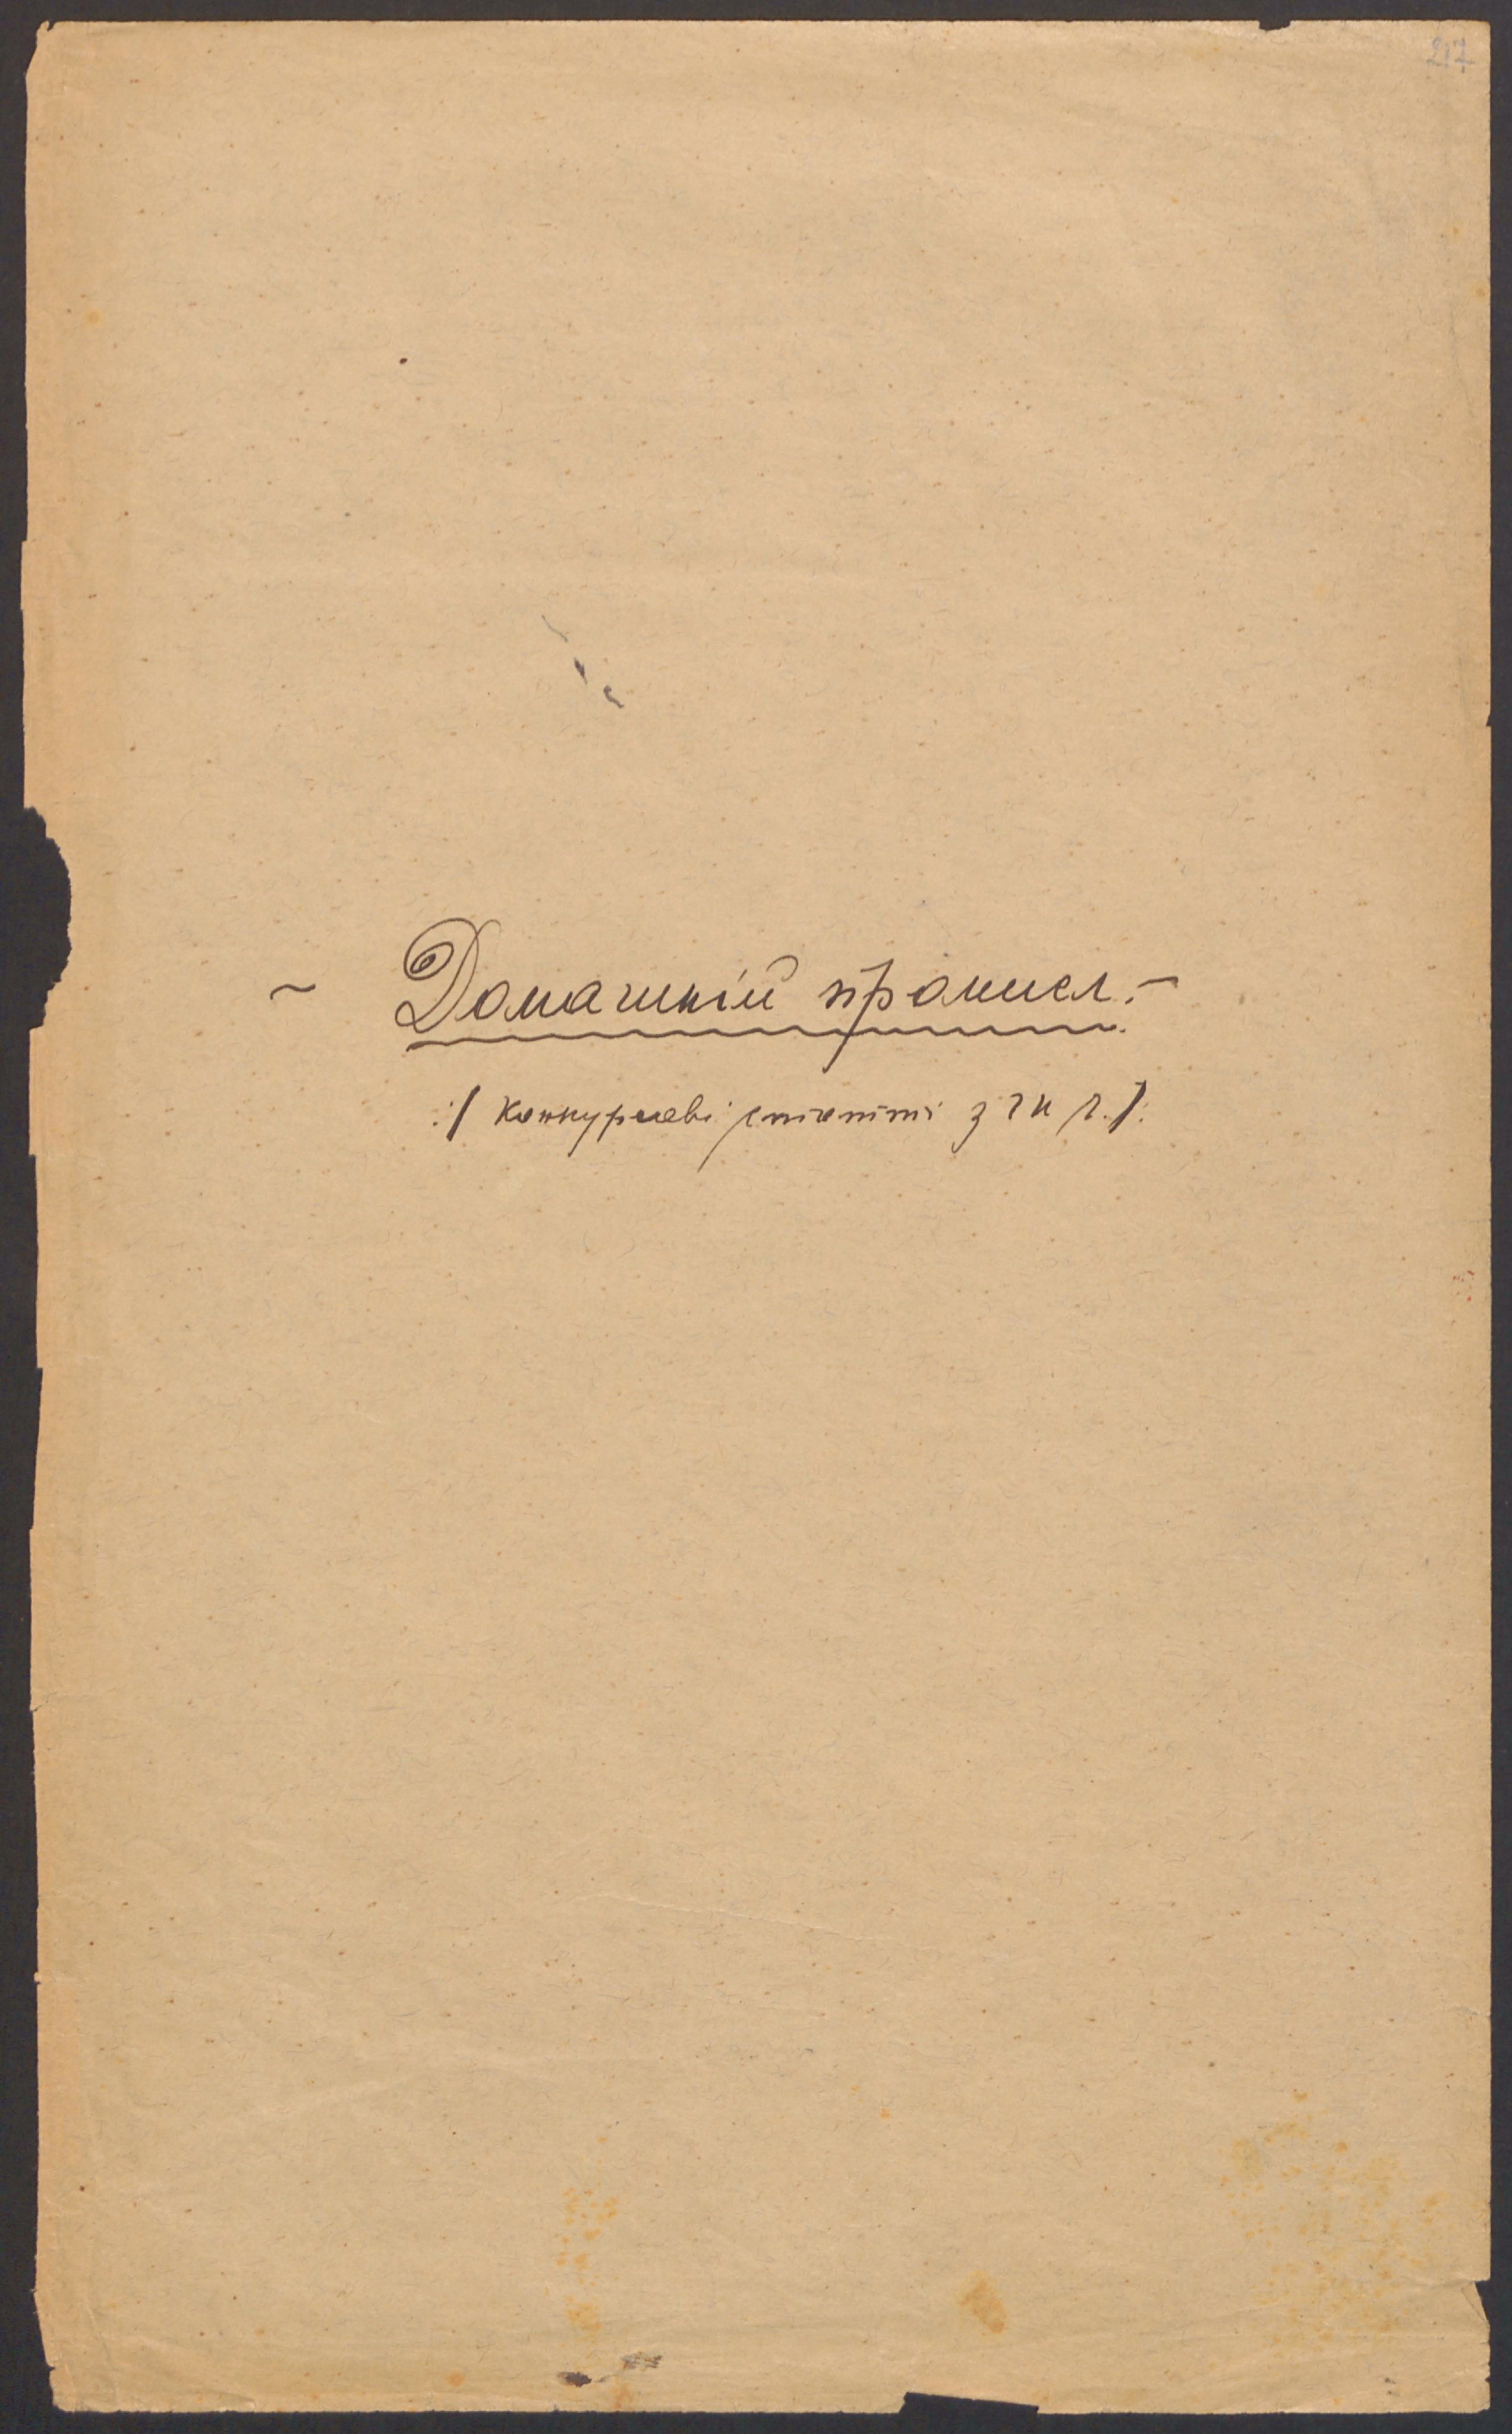 217
~ Домашній промисл. –
:/ Конкурсові статті з